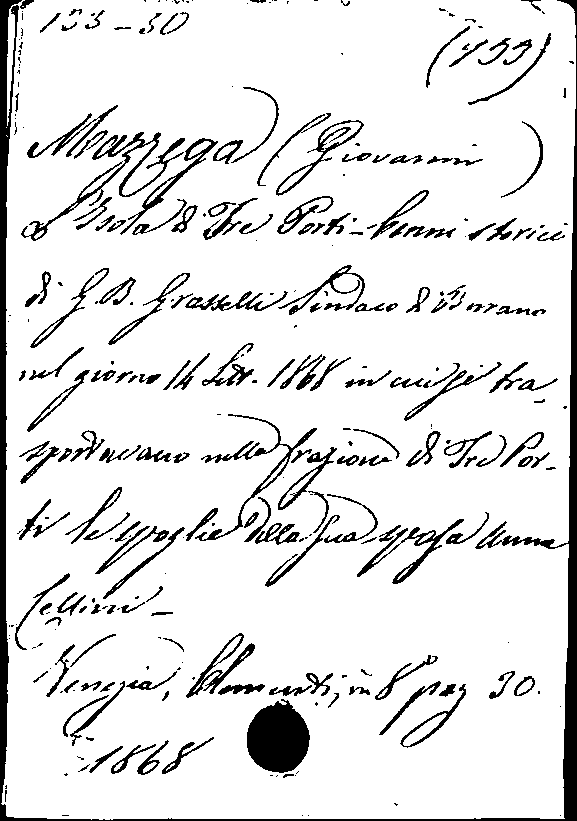 133-30
(133)
Mazzega (Giovanni)
L'Isola di Tre Porti - Cenni storici
di G. B. Grasselli Sindaco di Burano
nel giorno 14 Sett. 1868 in cui si tra-
sportavano nella frazione di Tre Por-
ti le spoglie della sua sposa Anna
Cellini -
Venezia, Clementi, in 8° pag 30.
1868